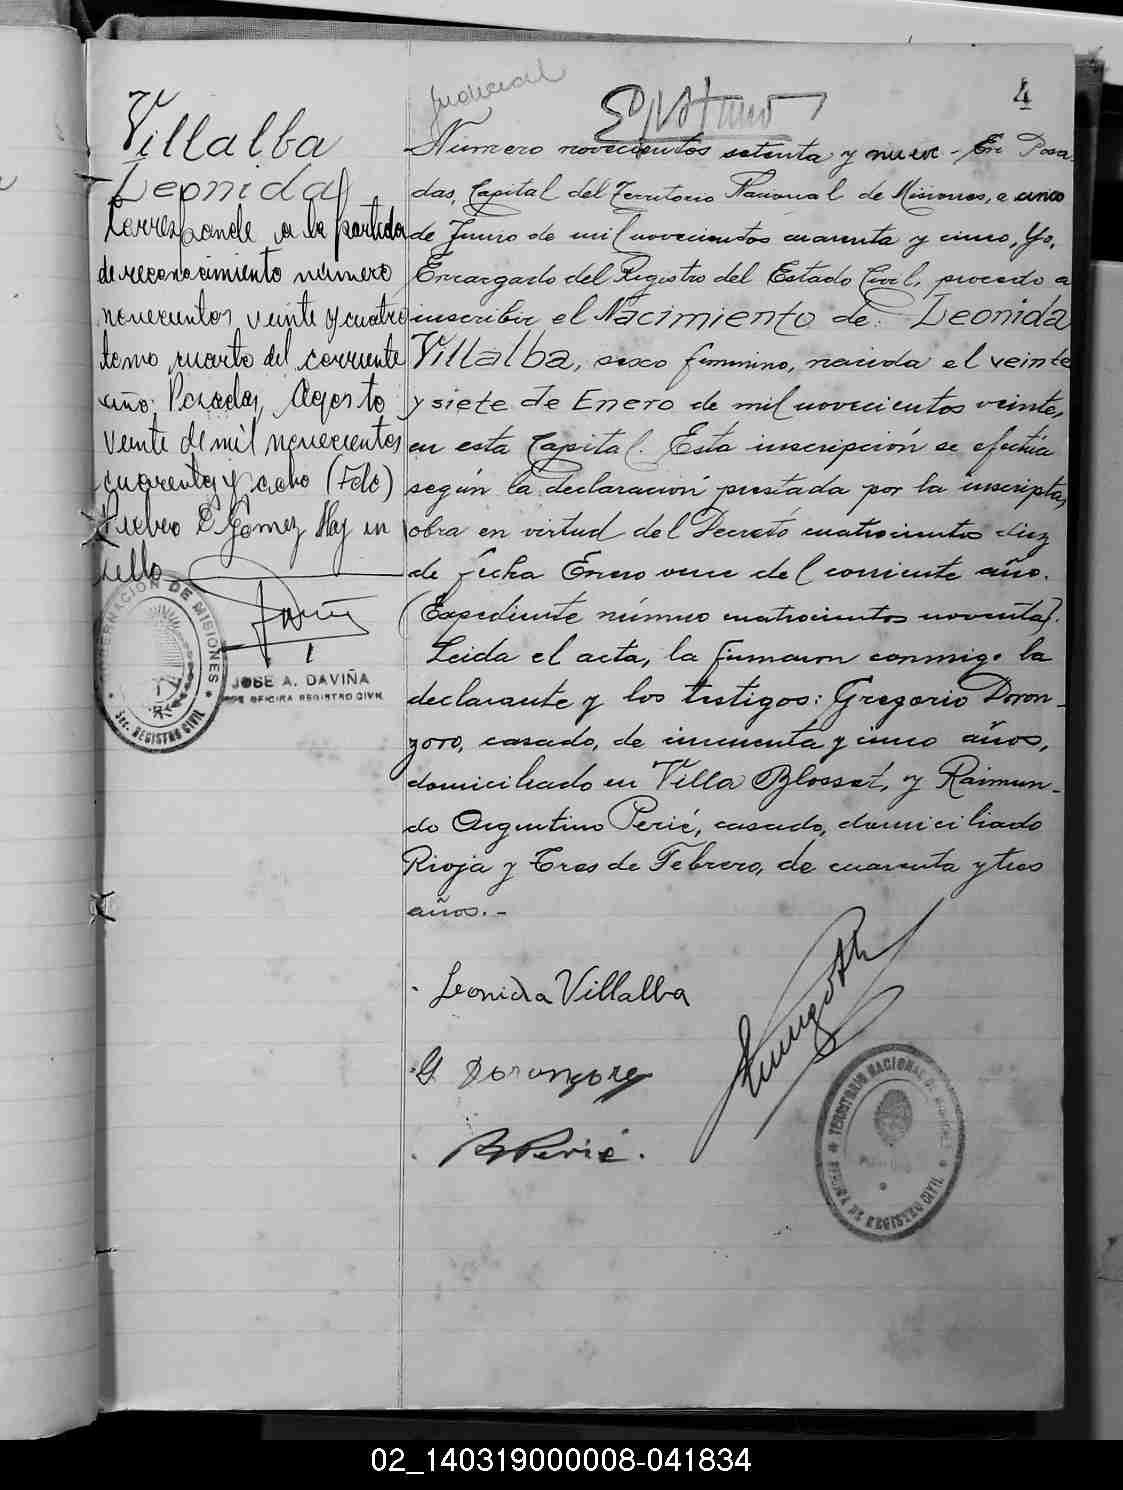 Judicial
4
Villalba
Leonida
Corresponde a la partida
de reconocimiento número
novecientos veinte y cuatro
tomo cuarto del corriente
año. Posadas, Agosto
veinte de mil novecientos
cuarenta y ocho (Fdo)
Gomez Hay un
sello
GOBERNACION DE MISIONES
SEC. REGISTRO CIVIL
JOSE A. DAVIÑA
DE OFICINA REGISTRO CIVIL
Número novecientos setenta y nueve - En Posa-
das, Capital del Territorio Nacional de Misiones, a cinco
de Junio de mil novecientos cuarenta y cinco, Yo,
Encargado del Registro del Estado Civil, procedo a
inscribir el Nacimiento de: Leonida
Villalba, sexo femenino, nacida el veinte
y siete de Enero de mil novecientos veinte,
en esta Capital. Esta inscripción se efectúa
según la declaración prestada por la inscripta,
obra en virtud del Decreto cuatrocientos diez
de fecha Enero once del corriente año.
(Expediente número cuatrocientos noventa).
Leida el acta, la firmaron conmigo la
declarante y los testigos: Gregorio Doron-
zoro, casado, de cincuenta y cinco años,
domiciliado en Villa Blosset, y Raimun-
do Argentino Perié, casado, domiciliado
Rioja y Tres de Febrero, de cuarenta y tres
años.-
Leonida Villalba
G Doronzoro
R Perié.
TERRITORIO NACIONAL DE MISIONES
OFICINA DE REGISTRO CIVIL
02_140319000008-041834